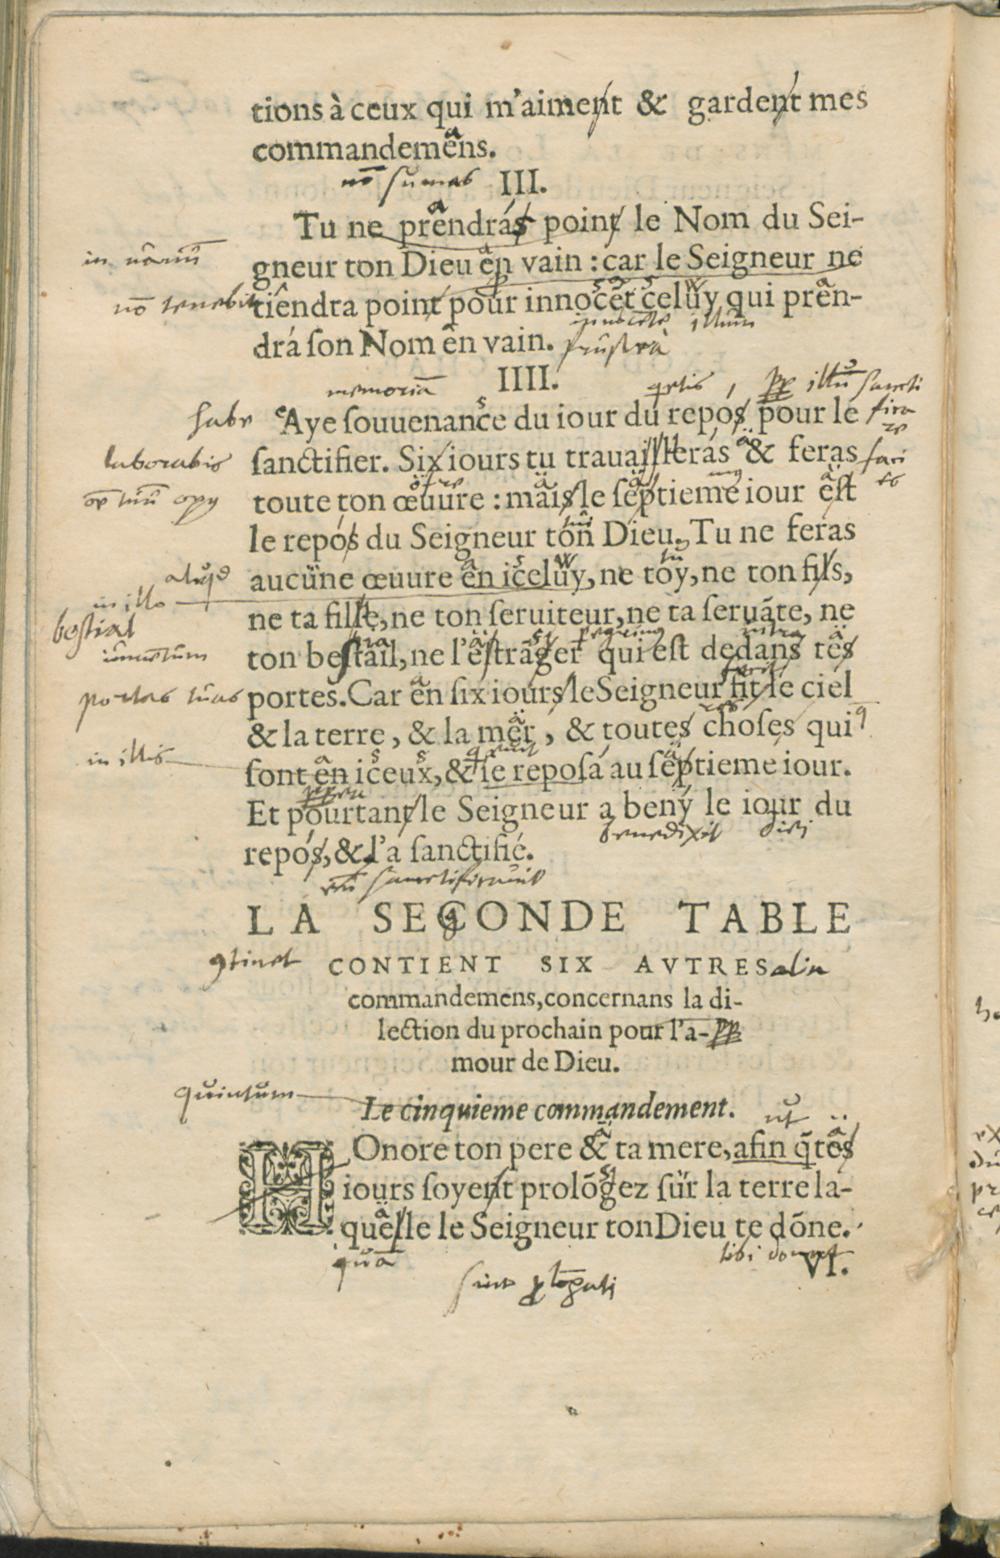 tions à ceux qui m'aiment & gardent mes
commandemens.
nō sumas III.
Tu ne prendrás point le Nom du Sei-
in vānū
gneur ton Dieu en vain : car le Seigneur ne
nō tenebit
tiendra point pour innocēt celuy qui pren-
illum
drá son Nom en vain. frustrà
IIII.
memoriā
habe Aye souuenance du iour du repos pour le
laborabis sanctifier. Six iours tu trauailleras & feras
toute ton œuure : mais le septieme iour est
le repos du Seigneur ton Dieu. Tu ne feras
aucune œuure en iceluy, ne toy, ne ton fils,
in illo
ne ta fille, ne ton seruiteur, ne ta seruāte, ne
bestial
iumentum ton bestail, ne l'estrāger qui est dedans tes
portas tuas portes. Car en six iours le Seigneur fit le ciel
& la terre, & la mer, & toutes choses qui
in illis
sont en iceux, & se reposa au septieme iour.
Et pourtant le Seigneur a beny le iour du
benedixit diei
repos, & l'a sanctifié.
LA SECONDE TABLE
CONTIENT SIX AVTRES alia
commandemens, concernans la di-
lection du prochain pour l'a-
mour de Dieu.
quintum
Le cinquieme commandement.
ut
HOnore ton pere & ta mere, afin q̄ tes
iours soyent prolōgez sur la terre la-
quelle le Seigneur ton Dieu te dōne.
quā tibi donat
VI.
sint